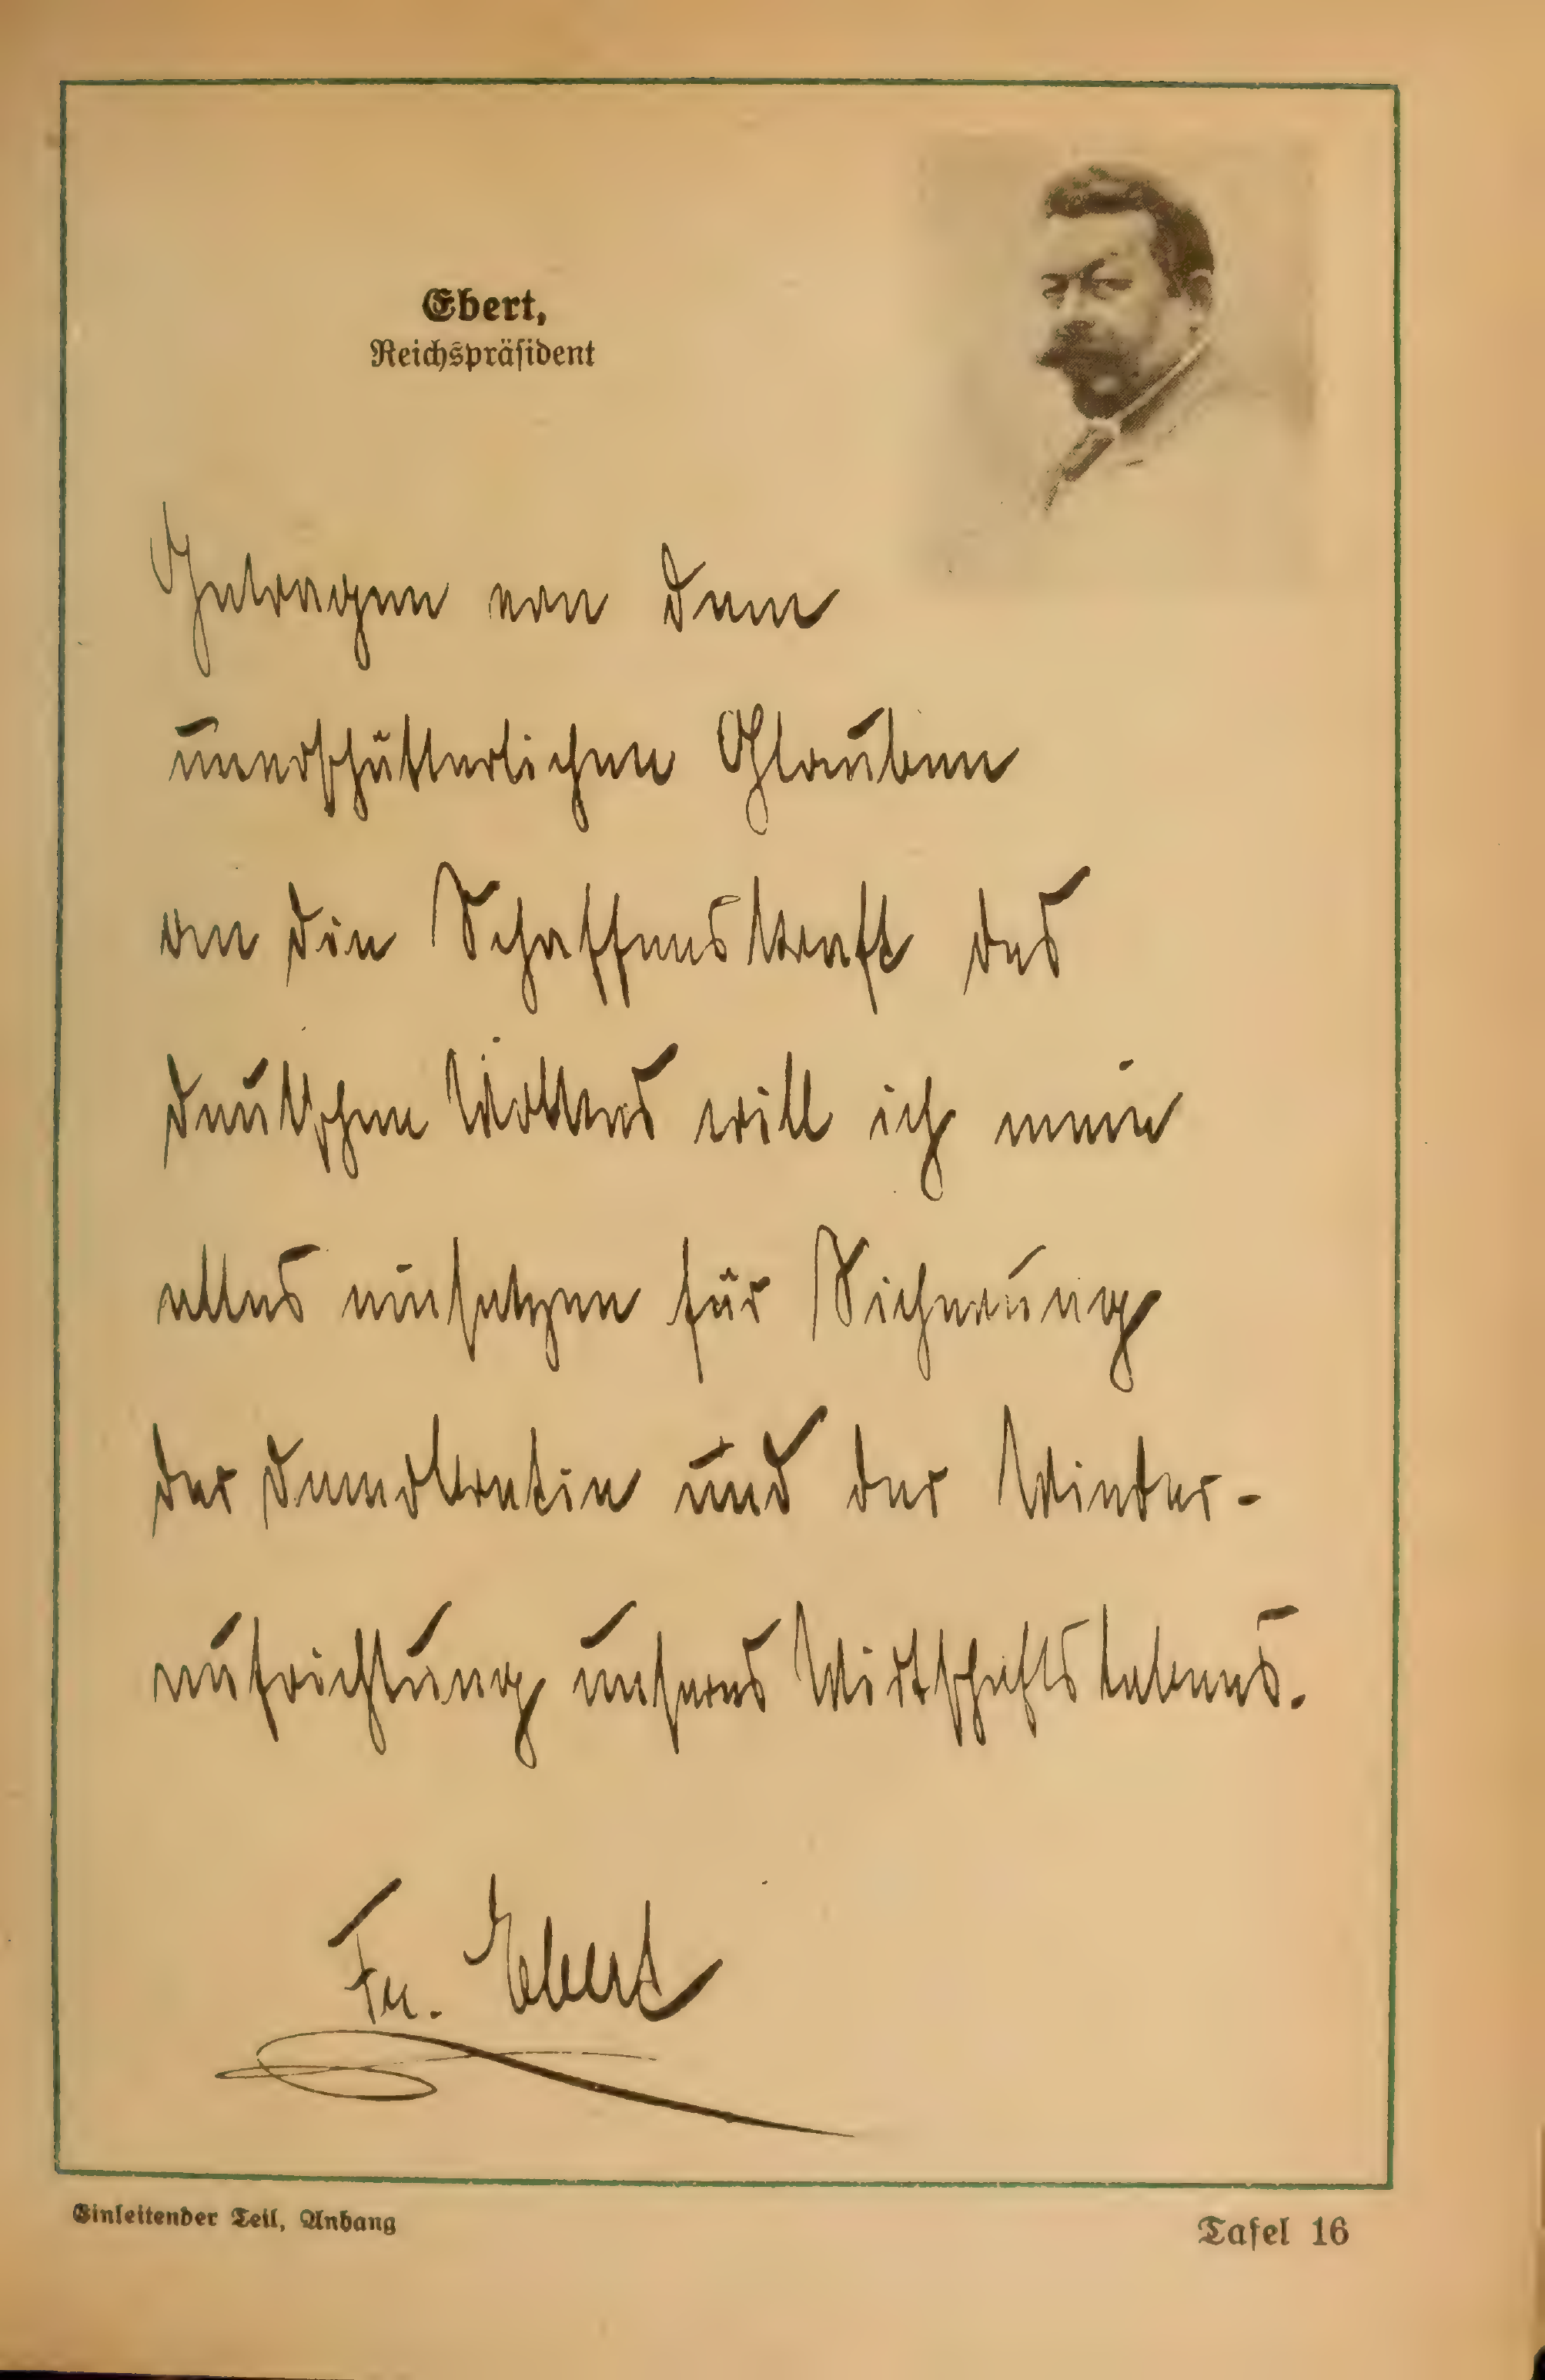 Ebert,
Reichspräsident
Getragen von dem
unerschütterlichen Glauben
an die Schaffenskraft des
deutschen Volkes will ich mein
alles einsetzen für Sicherung
der Demokratie und der Wieder-
aufrichtung unseres Wirtschaftslebens.
Fr. Ebert
Einleitender Teil, Anhang
Tafel 16